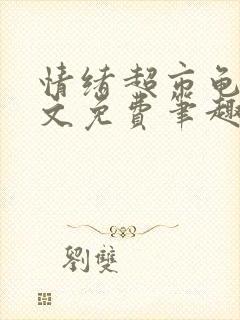 情绪超市龟
文免费笔趣
劉雙